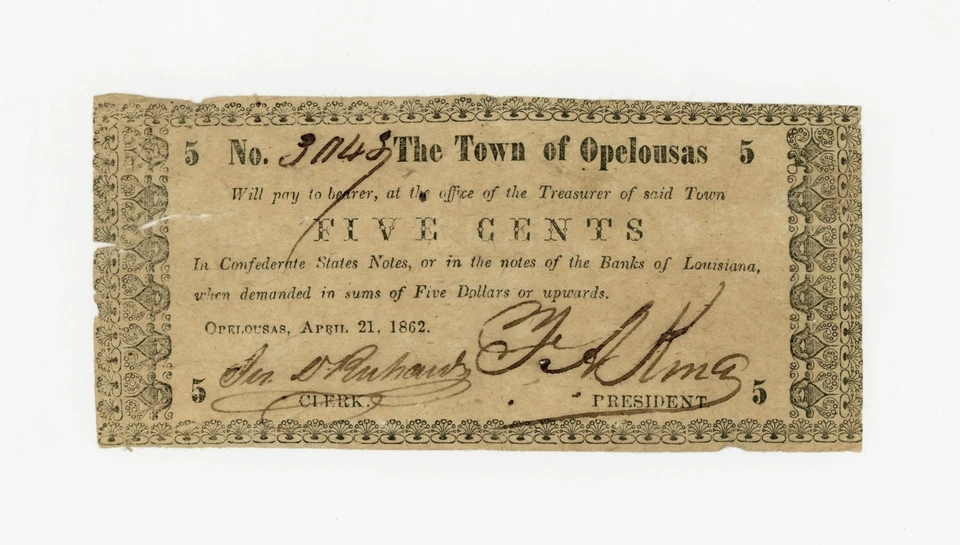 5 No. 3043 The Town of Opelousas 5
Will pay to bearer, at the office of the Treasurer of said Town
FIVE CENTS
In Confederate States Notes, or in the notes of the Banks of Louisiana,
when demanded in sums of Five Dollars or upwards.
OPELOUSAS, APRIL 21, 1862.
5 CLERK. PRESIDENT 5